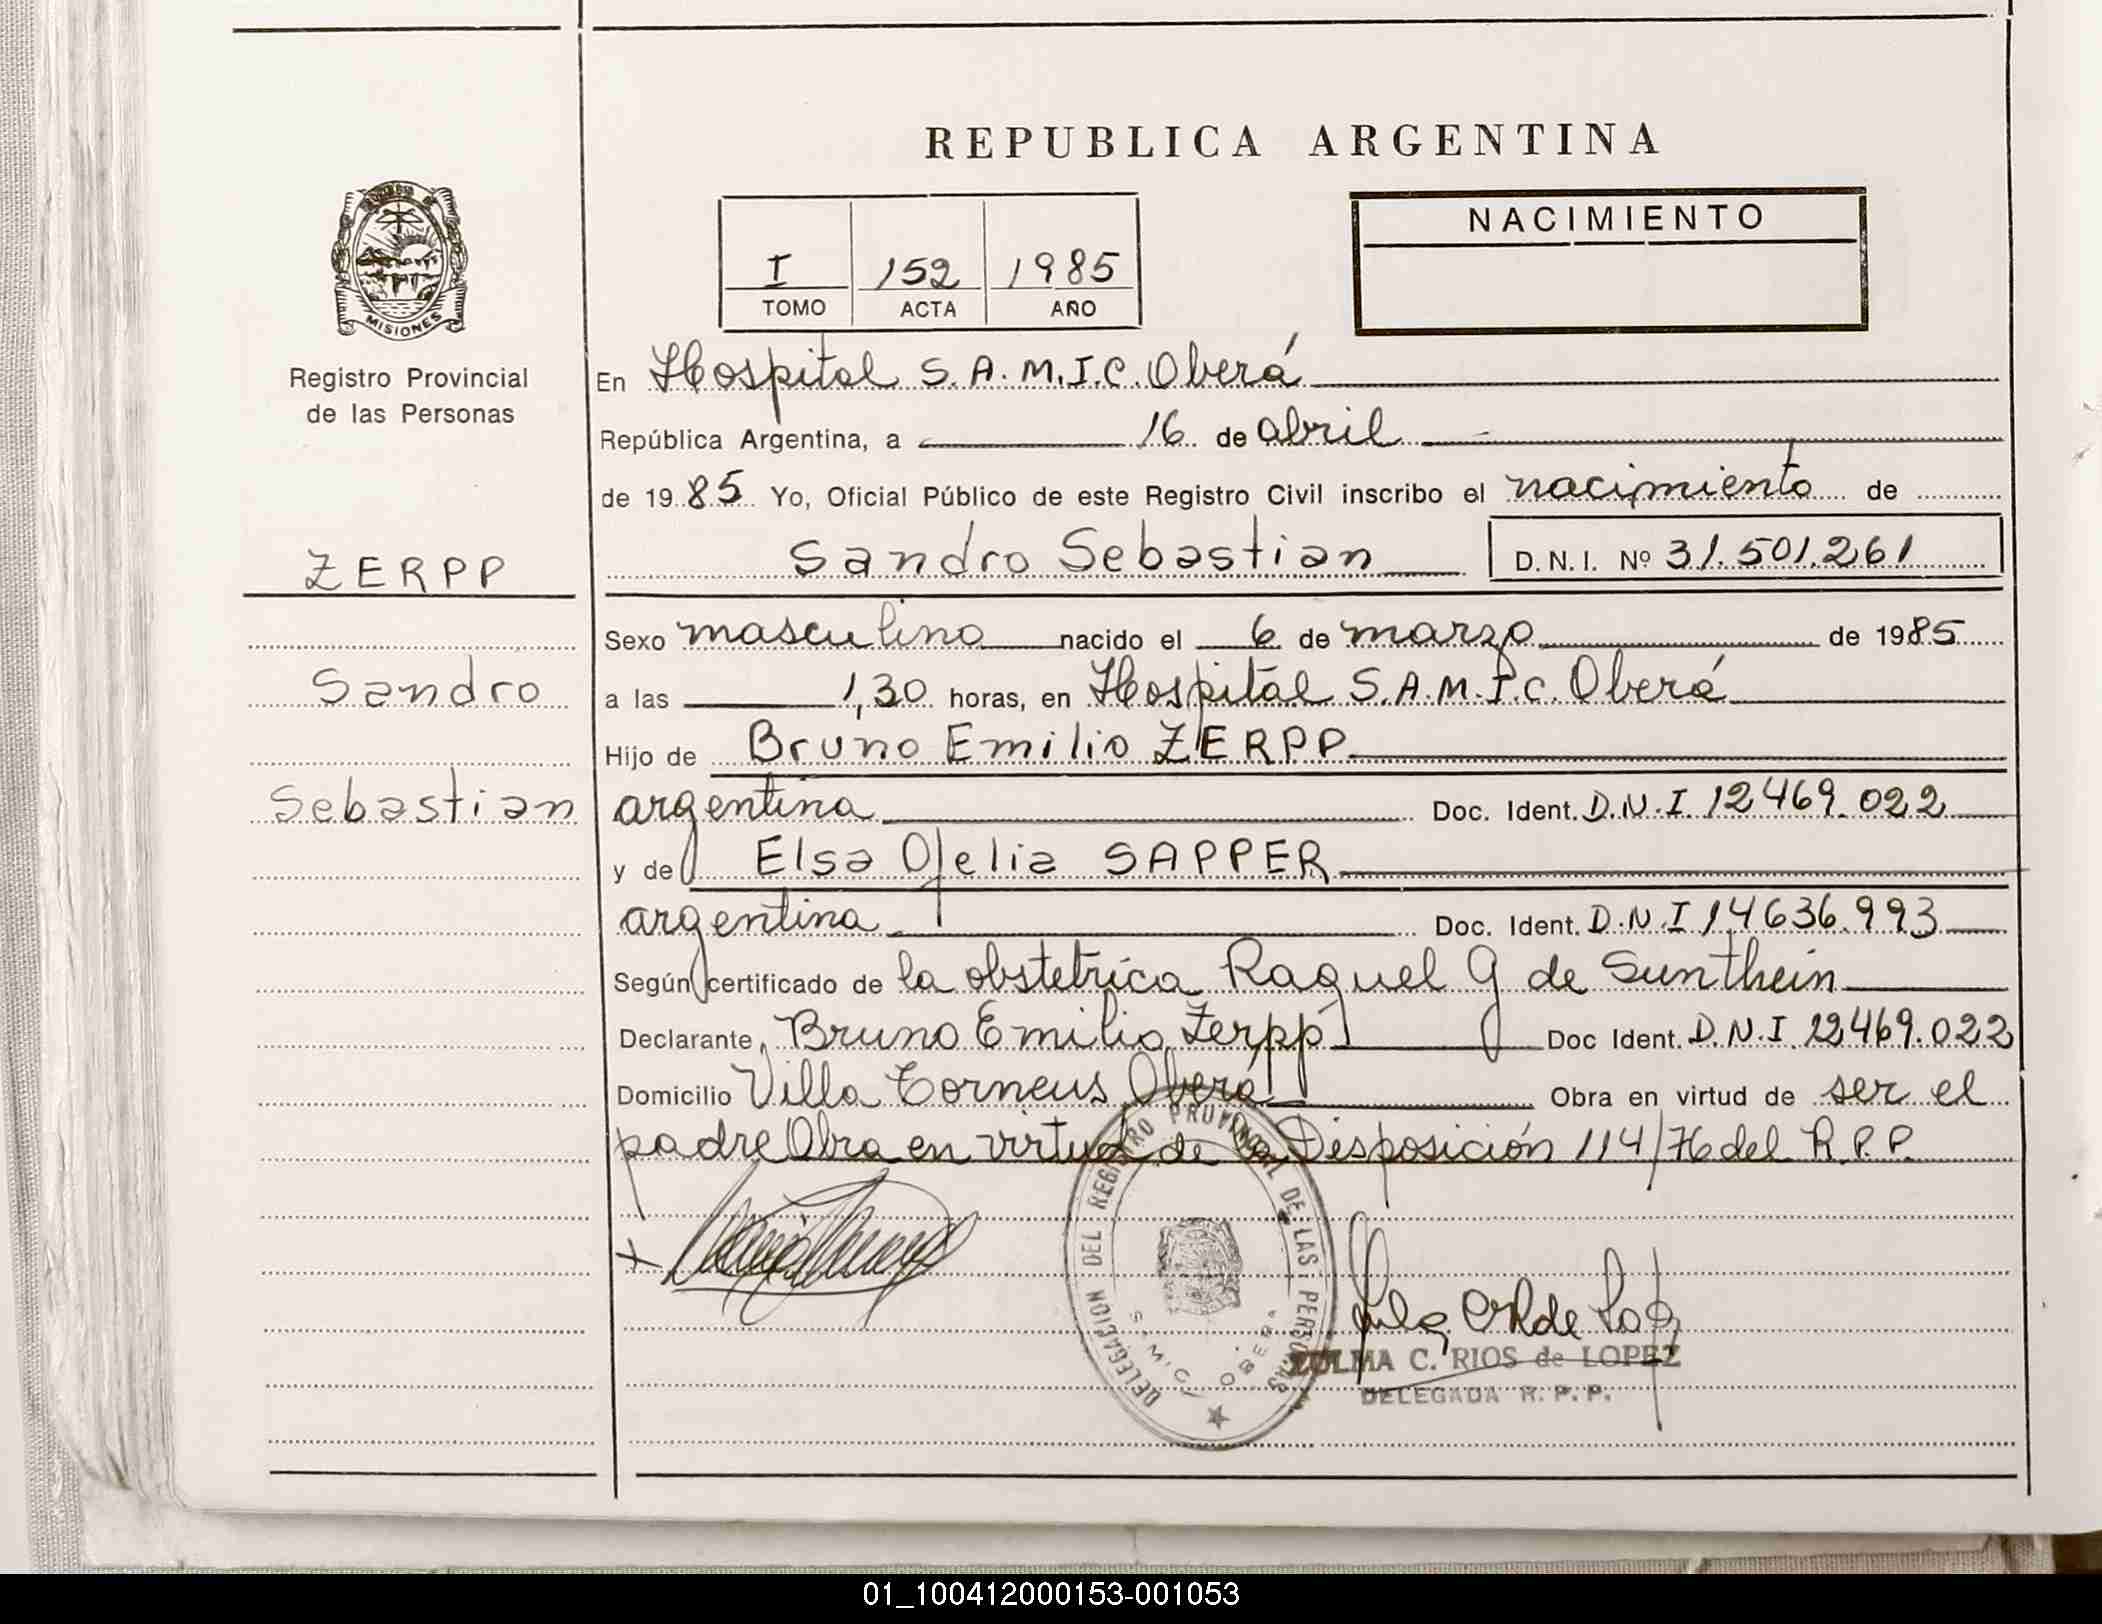 REPUBLICA ARGENTINA
MISIONES
Registro Provincial
de las Personas
I 152 1985
TOMO ACTA AÑO
NACIMIENTO
En Hospital S.A.M.I.C. Oberá
República Argentina, a 16 de abril
de 1985 Yo, Oficial Público de este Registro Civil inscribo el nacimiento de
ZERPP
Sandro Sebastian D.N.I. Nº 31.501.261
Sexo masculino nacido el 6 de marzo de 1985
Sandro
a las 1,30 horas, en Hospital S.A.M.I.C. Oberá
Hijo de Bruno Emilio ZERPP
Sebastian
argentina Doc. Ident. D.N.I. 12469.022
y de Elsa Ofelia SAPPER
argentina Doc. Ident. D.N.I 14636.993
Según certificado de la obstetrica Raquel G de Sunthein
Declarante Bruno Emilio Zerpp Doc Ident. D.N.I. 12469.022
Domicilio Villa Torneus Oberá Obra en virtud de ser el
padre Obra en virtud de la Disposición 114/76 del R.P.P.
DELEGACION DEL REGISTRO PROVINCIAL DE LAS PERSONAS
S.A.M.I.C. OBERA
ZULMA C. RIOS de LOPEZ
DELEGADA R.P.P.
01_100412000153-001053